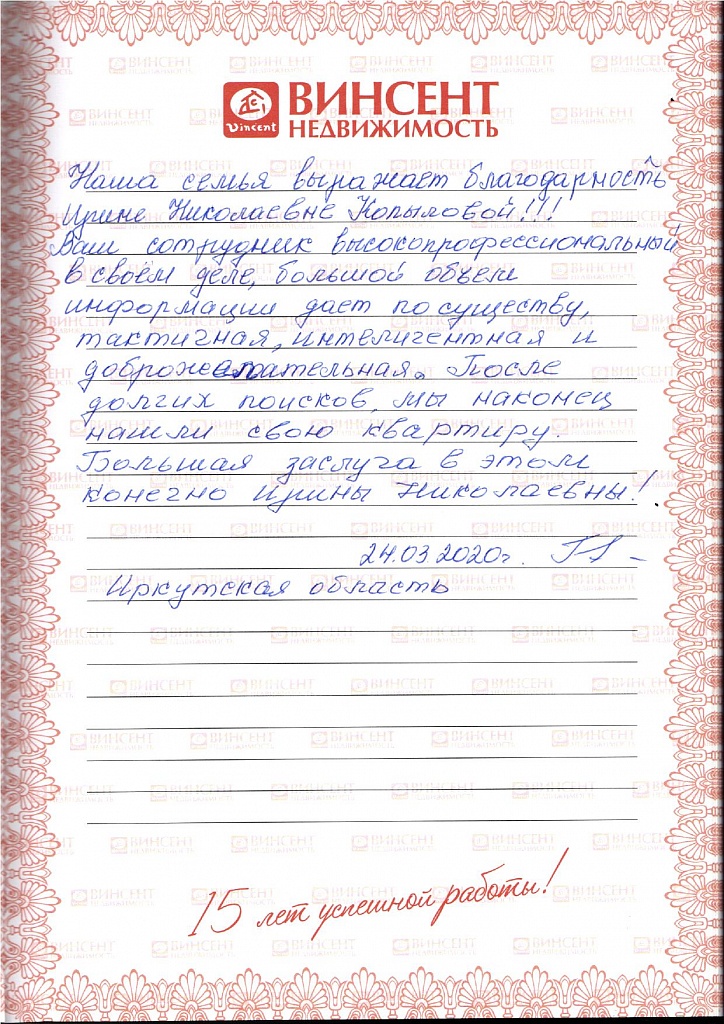 Vincent
ВИНСЕНТ
НЕДВИЖИМОСТЬ
Наша семья выражает благодарность
Ирине Николаевне Копыловой!!!
Ваш сотрудник высокопрофессиональный
в своём деле, большой объем
информации дает по существу,
тактичная, интелигентная и
доброжелательная. После
долгих поисков, мы наконец
нашли свою квартиру.
Большая заслуга в этом
конечно Ирины Николаевны!
24.03.2020г.
Иркутская область
15 лет успешной работы!